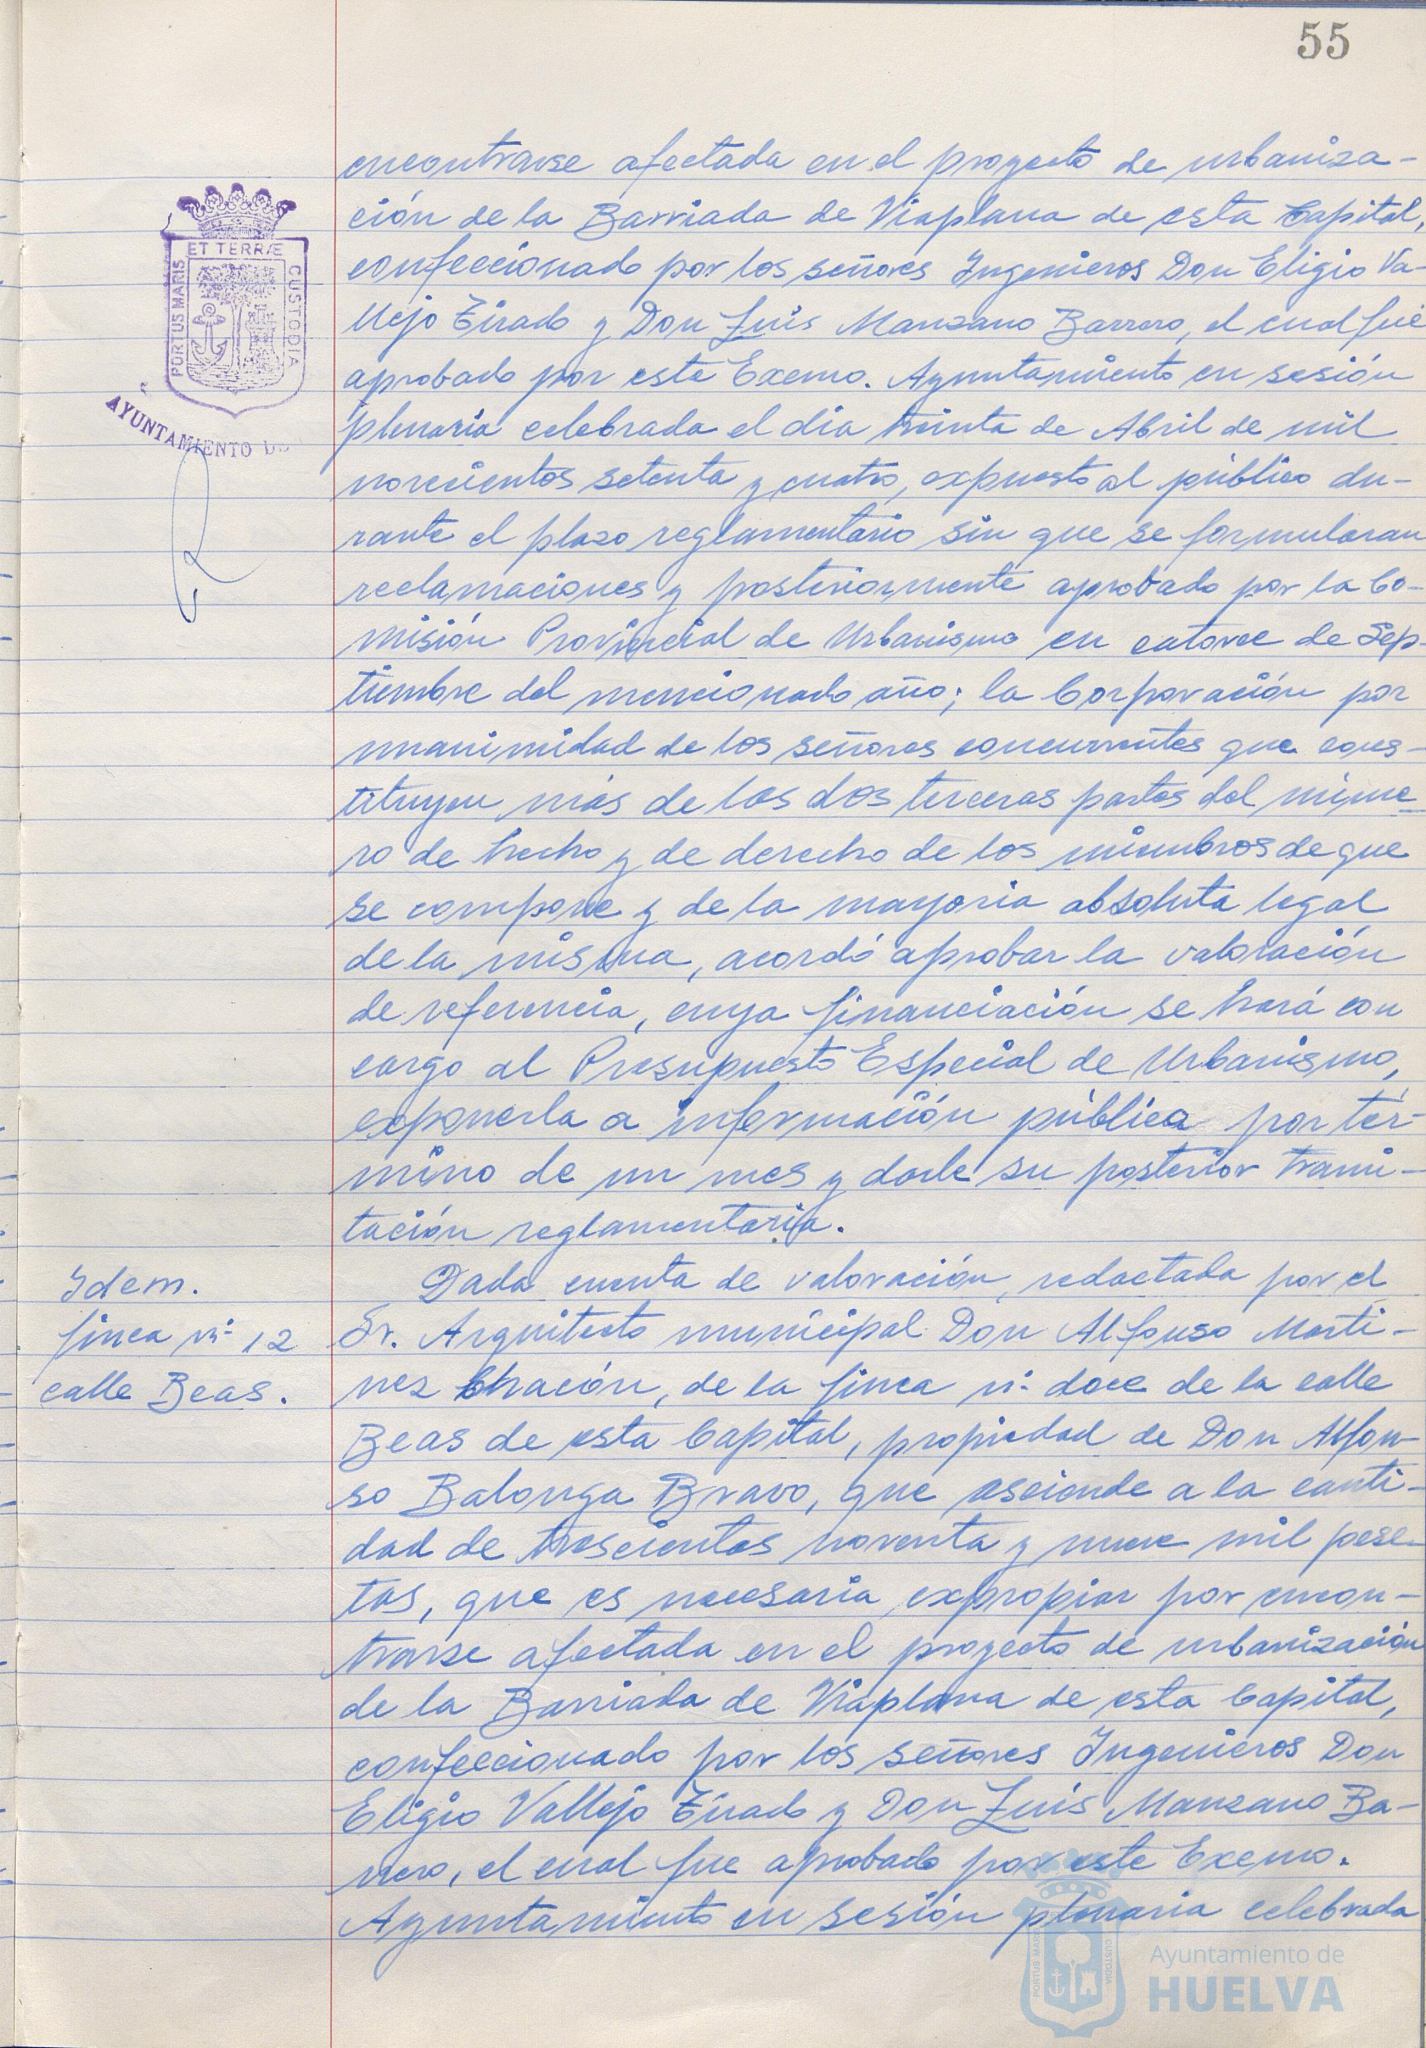 55
encontrarse afectada en el proyecto de urbaniza-
ción de la Barriada de Viaplana de esta Capital,
confeccionado por los señores Ingenieros Don Eligio Va-
llejo Tirado y Don Luis Manzano Barrero, el cual fue
aprobado por este Excmo. Ayuntamiento en sesión
plenaria celebrada el día treinta de Abril de mil
novecientos setenta y cuatro, expuesto al público du-
rante el plazo reglamentario sin que se formularan
reclamaciones y posteriormente aprobado por la Co-
misión Provincial de Urbanismo en catorce de Sep-
tiembre del mencionado año; la Corporación por
unanimidad de los señores concurrentes que cons-
tituyen más de las dos terceras partes del núme-
ro de hecho y de derecho de los miembros de que
se compone y de la mayoria absoluta legal
de la misma, acordó aprobar la valoración
de referencia, cuya financiación se hará con
cargo al Presupuesto Especial de Urbanismo,
exponerla a información pública por tér-
mino de un mes y darle su posterior trami-
tación reglamentaria.
Idem.
finca nº 12
calle Beas.
Dada cuenta de valoración, redactada por el
Sr. Arquitecto municipal Don Alfonso Martí-
nez Chacón, de la finca nº doce de la calle
Beas de esta Capital, propiedad de Don Alfon-
so Balonga Bravo, que asciende a la canti-
dad de trescientas noventa y nueve mil pese-
tas, que es necesaria expropiar por encon-
trarse afectada en el proyecto de urbanización
de la Barriada de Viaplana de esta Capital,
confeccionado por los señores Ingenieros Don
Eligio Vallejo Tirado y Don Luis Manzano Ba-
rrero, el cual fue aprobado por este Excmo.
Ayuntamiento en sesión plenaria celebrada
PORTUS MARIS
ET TERRÆ
CUSTODIA
AYUNTAMIENTO DE
PORTUS MARIS
CUSTODIA
Ayuntamiento de
HUELVA